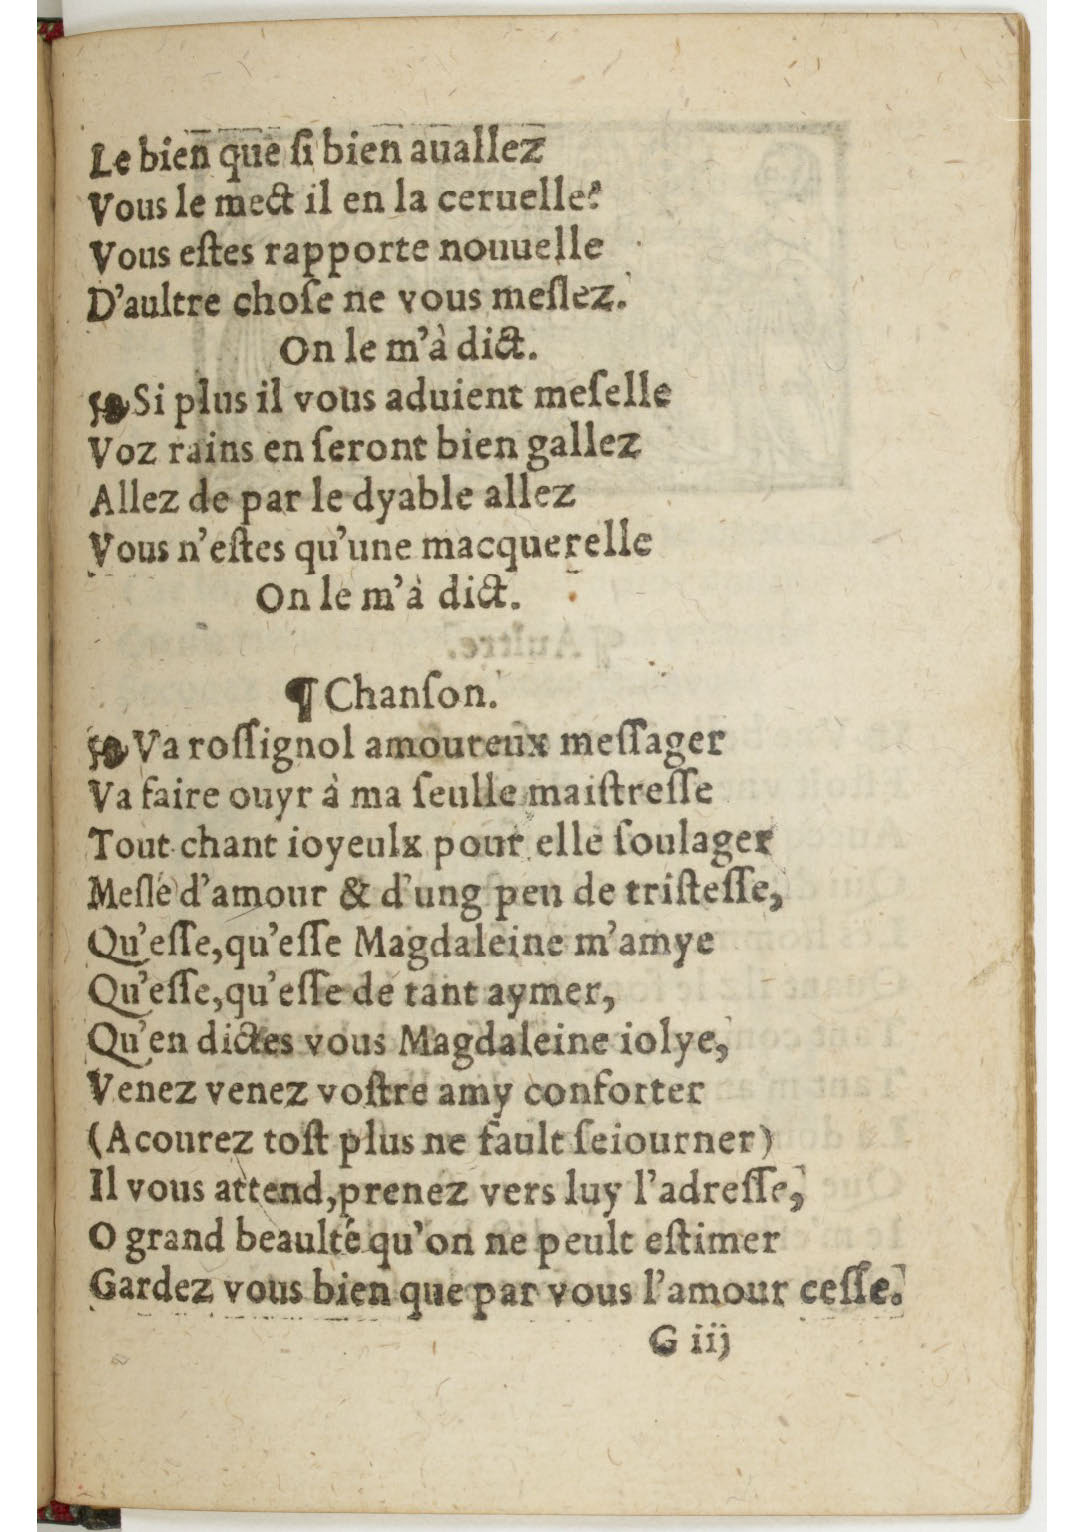 Le bien que ſi bien auallez
Vous le mect il en la ceruelle?
Vous eſtes rapporte nouuelle
D'aultre choſe ne vous meſlez.
On le m'à dict.
❧ Si plus il vous aduient meſelle
Voz rains en ſeront bien gallez
Allez de par le dyable allez
Vous n'eſtes qu'une macquerelle
On le m'à dict.
¶ Chanſon.
❧ Va roſſignol amoureux meſſager
Va faire ouyr à ma ſeulle maiſtreſſe
Tout chant ioyeulx pour elle ſoulager
Meſlé d'amour & d'ung peu de triſteſſe,
Qu'eſſe, qu'eſſe Magdaleine m'amye
Qu'eſſe, qu'eſſe de tant aymer,
Qu'en dictes vous Magdaleine iolye,
Venez venez voſtre amy conforter
(Acourez toſt plus ne fault ſeiourner)
Il vous attend, prenez vers luy l'adreſſe,
O grand beaulté qu'on ne peult eſtimer
Gardez vous bien que par vous l'amour ceſſe.
G iij